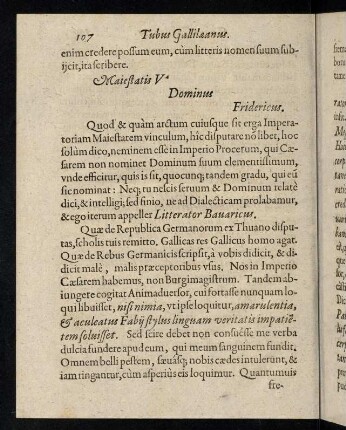 107 Tubus Gallilæanus.
enim credere possum eum, cùm litteris nomen suum sub-
ijcit, ita scribere.
Maiestatis Vᵃ
Dominus
Fridericus.
Quod & quàm arctum cuiusque sit erga Impera-
toriam Maiestatem vinculum, hîc disputare nõ libet, hoc
solùm dico, neminem esse in Imperio Procerum, qui Cæ-
sarem non nominet Dominum suum clementissimum,
vnde efficitur, quis is sit, quocunq; tandem gradu, qui eũ
sic nominat: Neq; tu nescis seruum & Dominum relatè
dici, & intelligi; sed sino, ne ad Dialecticam prolabamur,
& ego iterum appeller Litterator Bauaricus.
Quæ de Republica Germanorum ex Thuano dispu-
tas, scholis tuis remitto. Gallicas res Gallicus homo agat.
Quæ de Rebus Germanicis scripsit, à vobis didicit, & di-
dicit malè, malis præceptoribus vsus. Nos in Imperio
Cæsarem habemus, non Burgimagistrum. Tandem ab-
iungere cogitat Animaduersor, cui fortasse nunquam lo-
qui libuisset, nisi nimia, vt ipse loquitur, amarulentia,
& aculeatus Fabij stylus linguam veritatis impatiē-
tem soluisset. Sed scire debet non consuésse me verba
dulcia fundere apud eum, qui meum sanguinem fundit,
Omnem belli pestem, sæuasq; nobis cædes intulerunt, &
iam ringantur, cùm asperiùs eis loquimur. Quantumuis
fre-